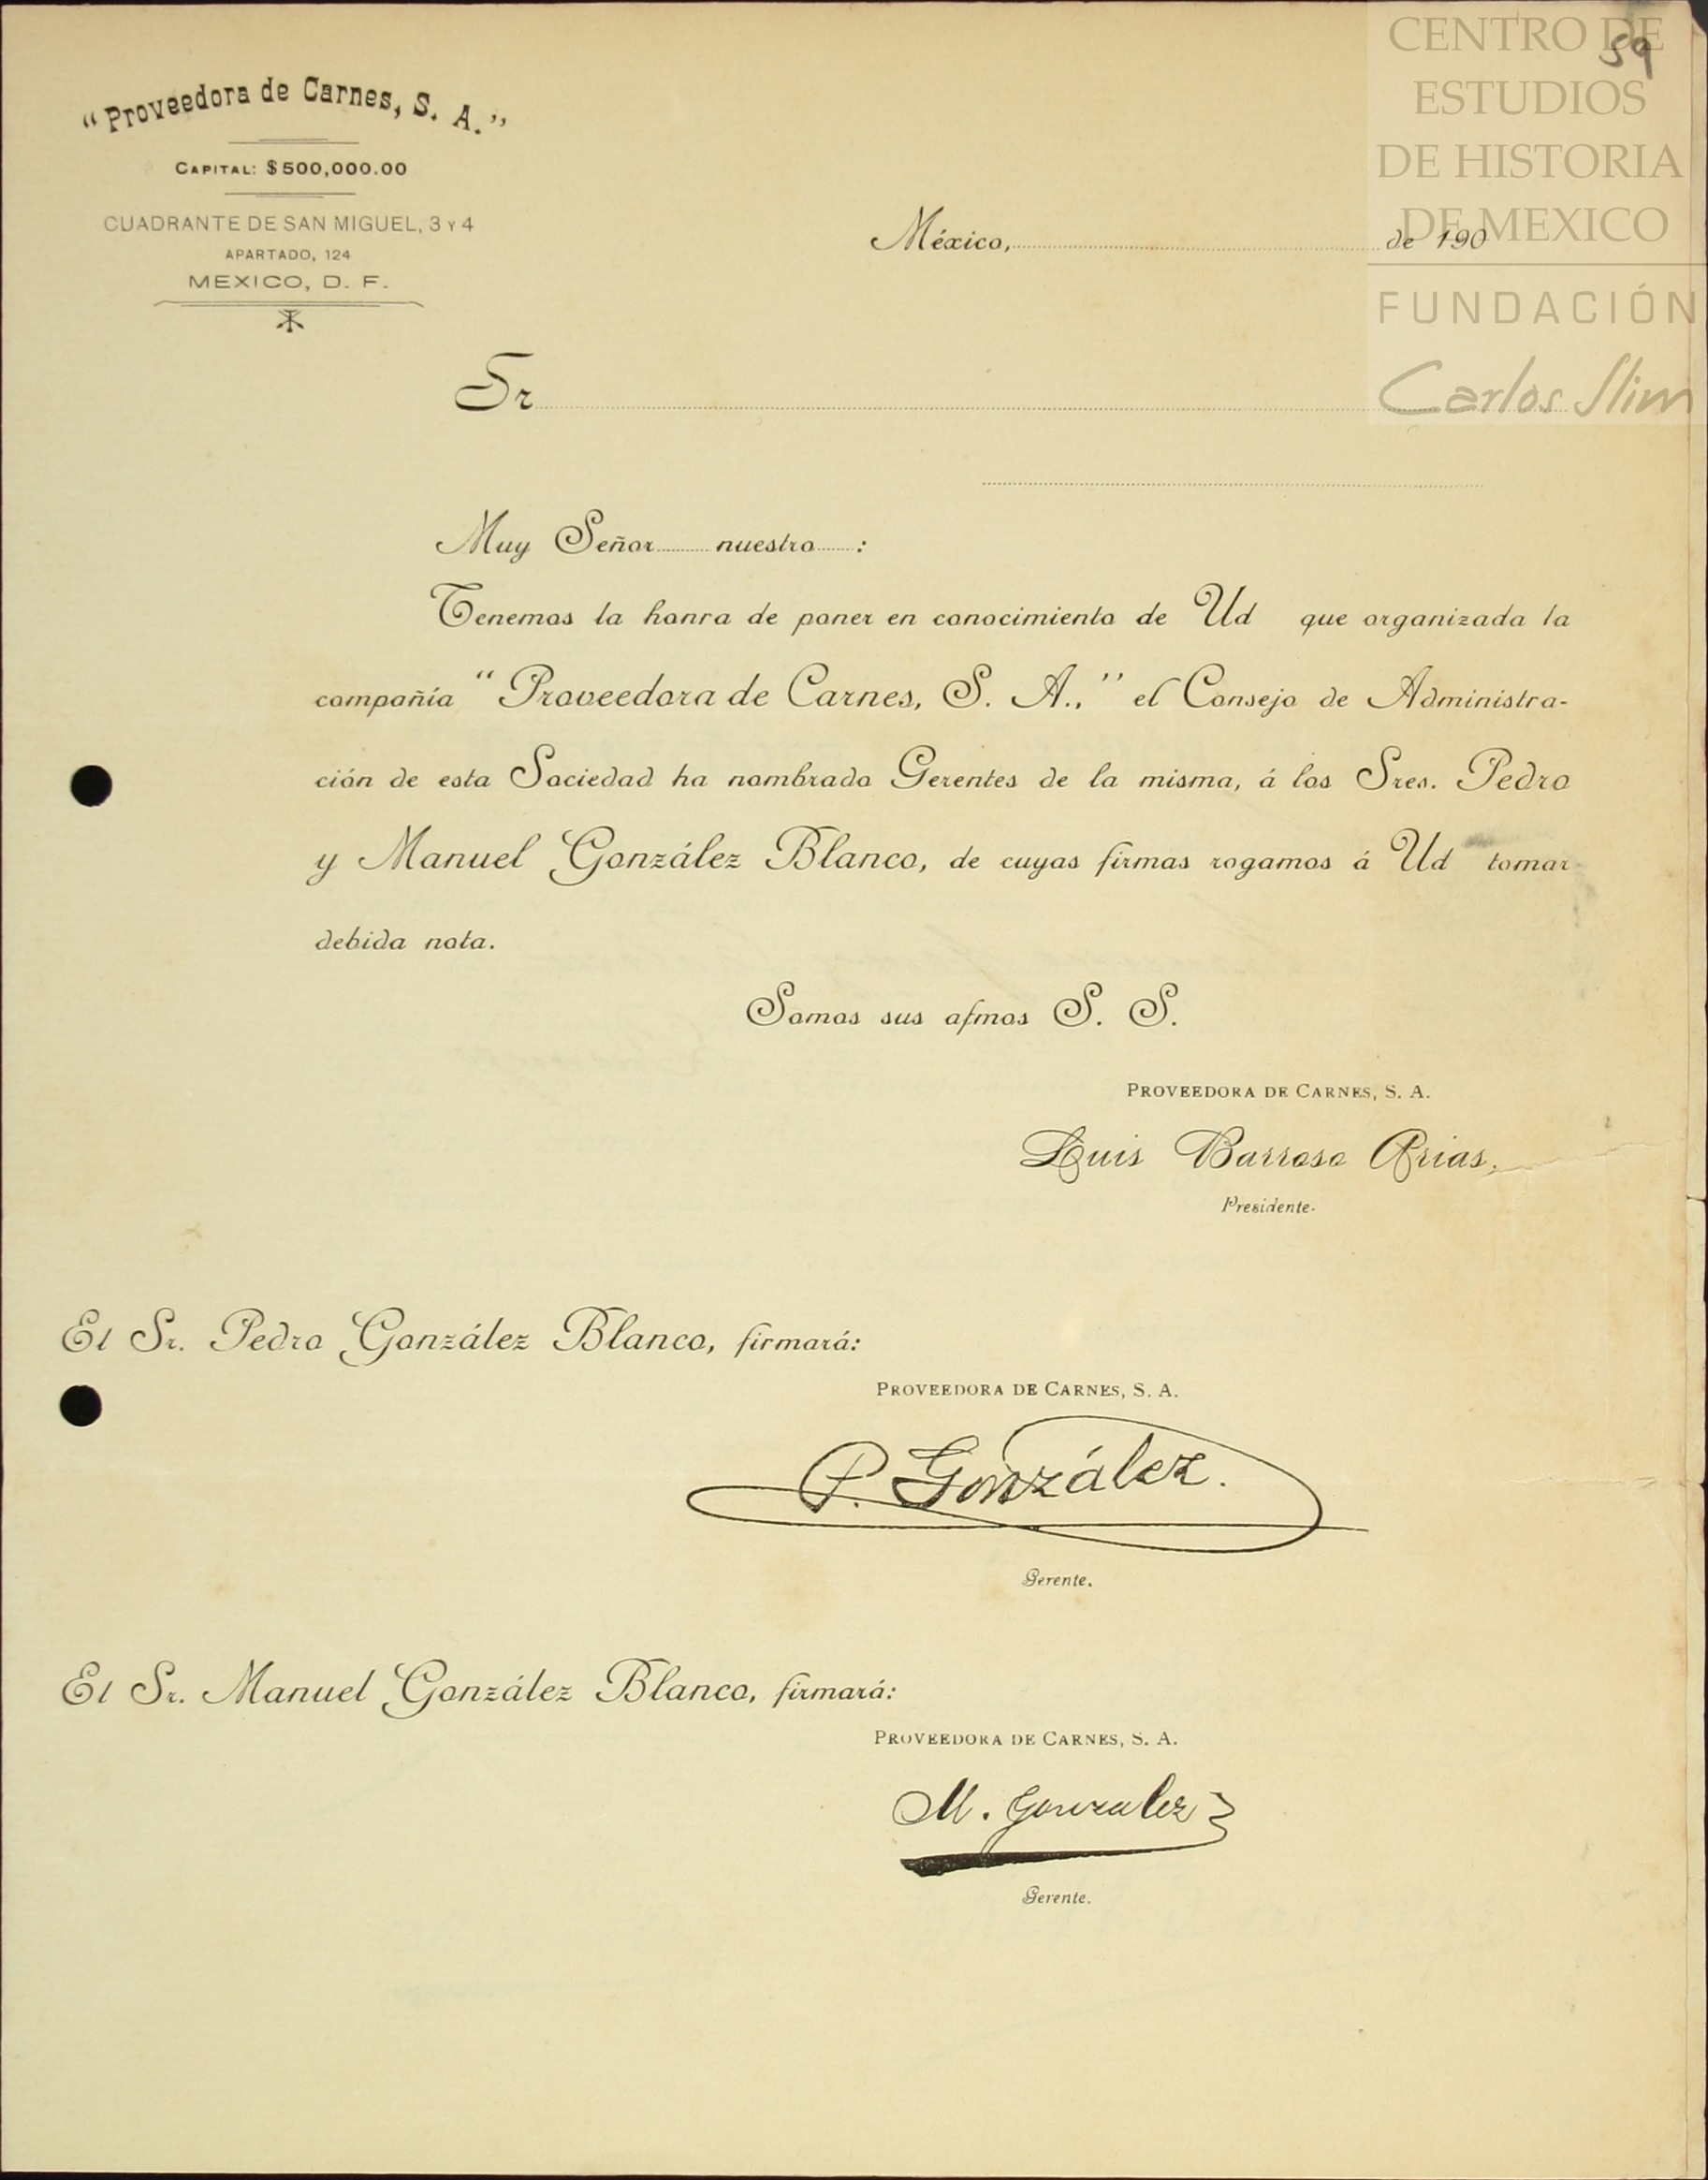 CENTRO DE
ESTUDIOS
DE HISTORIA
DE MEXICO
FUNDACIÓN
Carlos Slim
59
"Proveedora de Carnes, S. A."
CAPITAL: $500,000.00
CUADRANTE DE SAN MIGUEL, 3 Y 4
APARTADO, 124
MEXICO, D. F.
México, de 190
Sr
Muy Señor nuestro :
Tenemos la honra de poner en conocimiento de Ud que organizada la
compañía "Proveedora de Carnes, S. A.," el Consejo de Administra-
ción de esta Sociedad ha nombrado Gerentes de la misma, á los Sres. Pedro
y Manuel González Blanco, de cuyas firmas rogamos á Ud tomar
debida nota.
Somos sus afmos S. S.
PROVEEDORA DE CARNES, S. A.
Luis Barroso Arias.
Presidente.
El Sr. Pedro González Blanco, firmará:
PROVEEDORA DE CARNES, S. A.
P. González.
Gerente.
El Sr. Manuel González Blanco, firmará:
PROVEEDORA DE CARNES, S. A.
M. Gonzalez
Gerente.